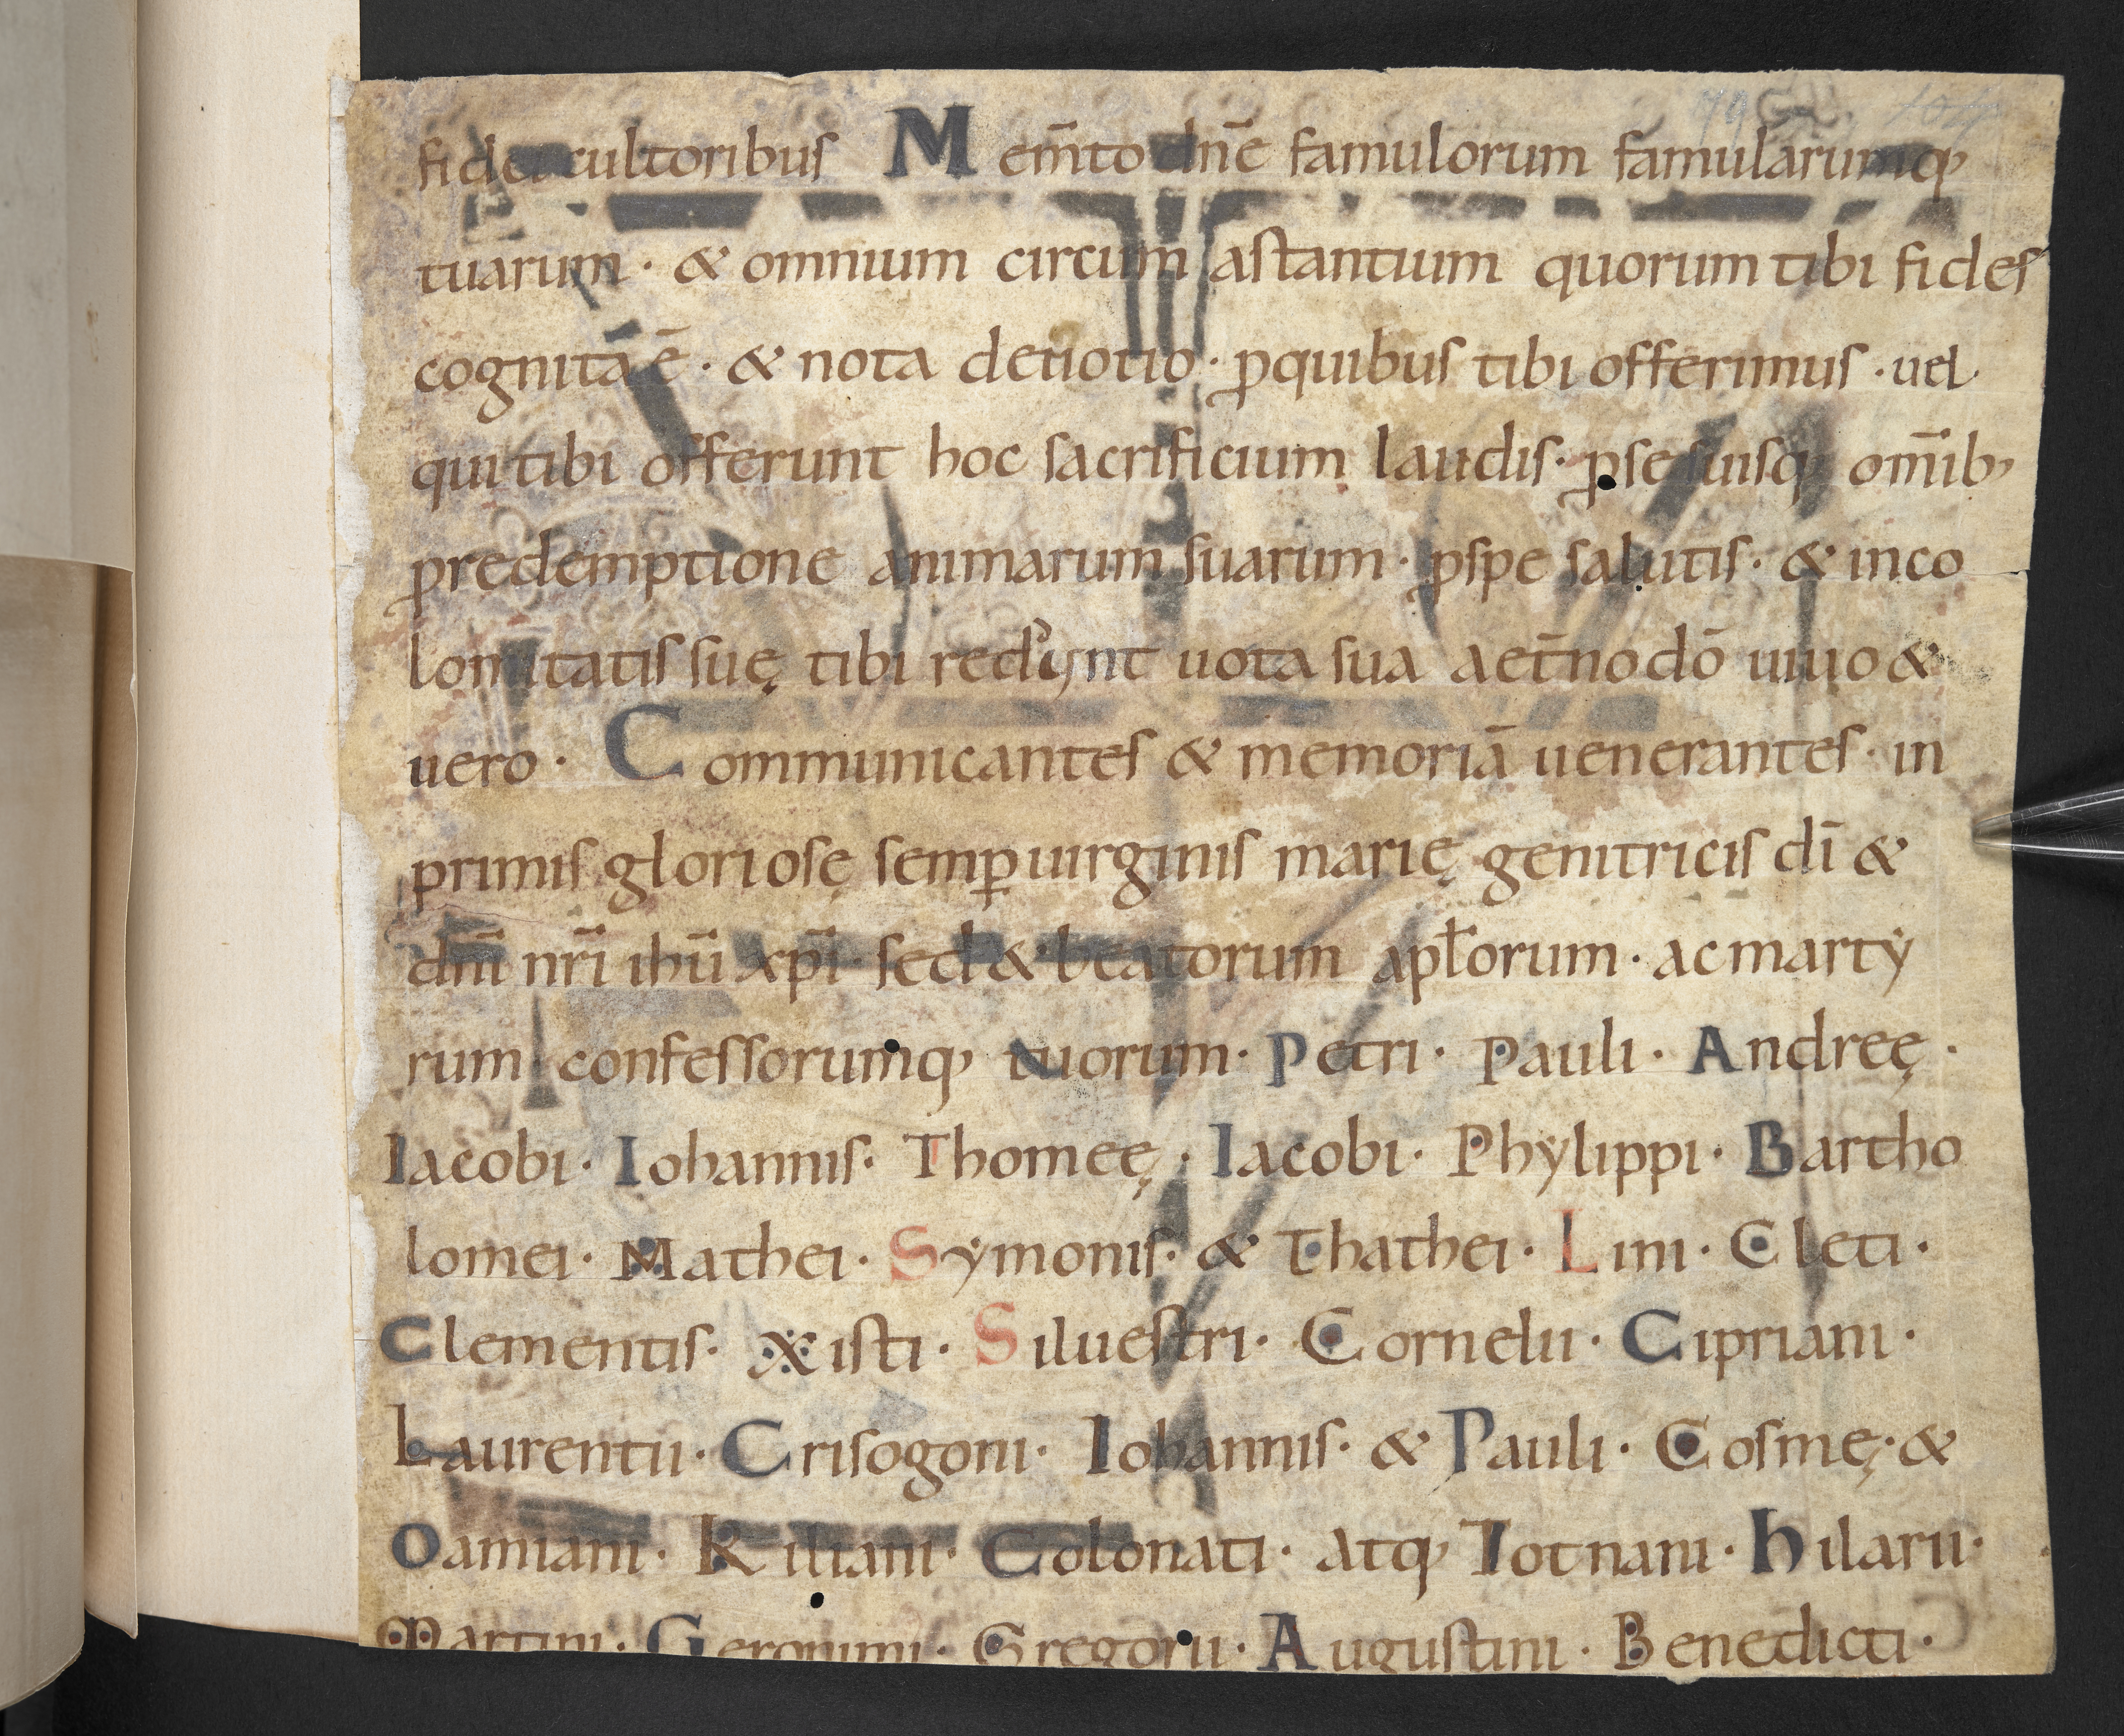 fidei cultoribus Mem̄to dn̄e famulorum famularumq;
tuarum · & omnium circum astantium quorum tibi fides
cognita ē · & nota deuotio · ꝓquibus tibi offerimus · uel
qui tibi offerunt hoc sacrificium laudis · ꝓse suisq; om̄ib;
ꝓredemptione animarum suarum · ꝓspe salutis · & inco
lomitatis suę tibi redd̓unt uota sua aet̄no dō uiuo &
uero · Communicantes & memoriā uenerantes · in
primis gloriosę semꝑ uirginis marię genitricis dī &
dn̄i nr̄i ihū xp̄i · sed & beatorum apl̄orum · ac marty
rum confessorumq; tuorum · Petri · Pauli · Andreę ·
Iacobi · Iohannis · Thomeę · Iacobi · Phylippi · Bartho
lomei · Mathei · Symonis · & Thathei · Lini · Cleti ·
Clementis · Xisti · Siluestri · Cornelii · Cipriani ·
Laurentii · Crisogoni · Iohannis · & Pauli · Cosmę · &
Damiani · Kiliani · Colonati · atq; Totnani · hilarii ·
Martini · Geronimi · Gregorii · Augustini · Benedicti ·